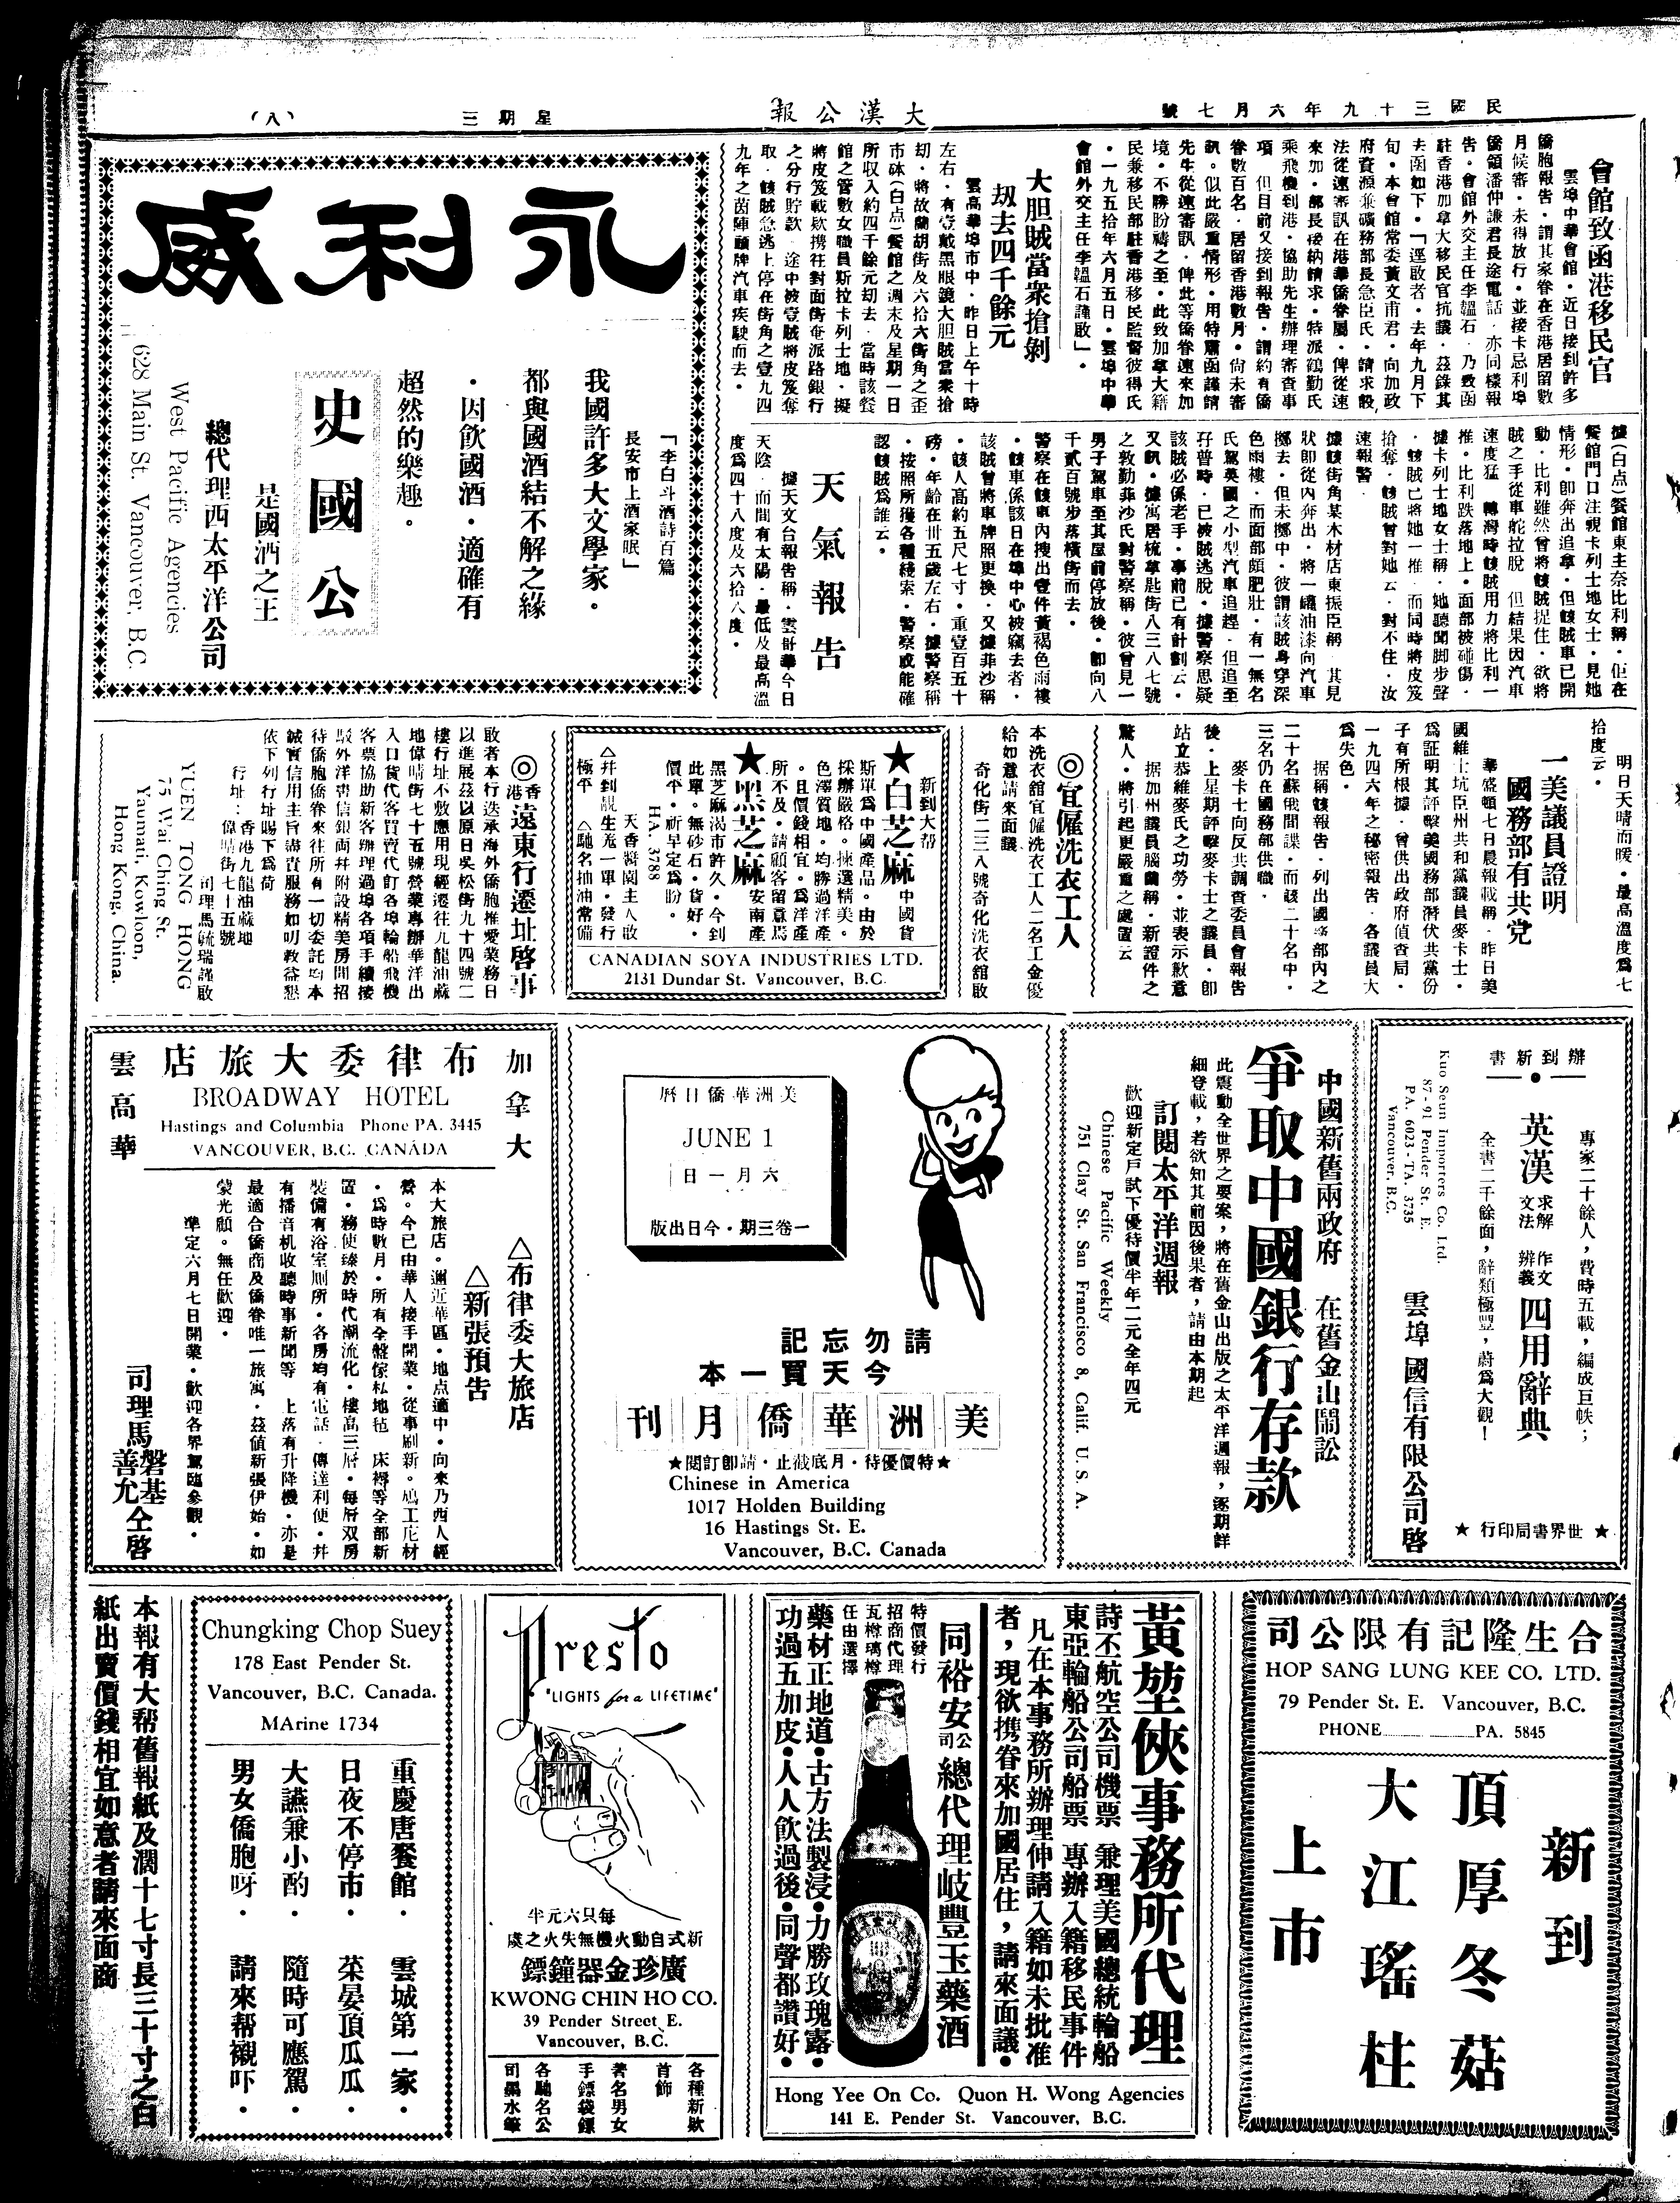 民國三十九年六月七號
大漢公報
星期三
(八)
會館致函港移民官
雲埠中華會館·近日接到許多
僑胞報告·謂其家眷在香港居留數
月候審·未得放行·並接卡忌利埠
僑領潘仲謙君長途電話·亦同樣報
告·會館外交主任李韞石·乃致函
駐香港加拿大移民官抗議·茲錄其
去函如下·「逕啟者·去年九月下
旬·本會館常委黃文甫君·向加政
府資源兼礦務部長急臣氏·請求設
法從速審訊在港華僑眷屬·俾從速
來加·部長接納請求·特派鶴勤氏
乘飛機到港·協助先生辦理審查事
項 但目前又接到報告·謂約有僑
眷數百名·居留香港數月·尚未審
訊·似此嚴重情形·用特肅函謹請
先生從速審訊·俾此等僑眷速來加
境·不勝盼禱之至·此致加拿大籍
民兼移民部駐香港移民監督彼得氏
·一九五十年六月五日·雲埠中華
會館外交主任李韞石謹啟」·
大胆賊當衆搶剝
刼去四千餘元
雲高華埠市中·昨日上午十時
左右·有壹戴黑眼鏡大胆賊當衆搶
刧·將故蘭胡街及六拾六街角之歪
市砵(白点)餐館之週末及星期一日
所収入約四千餘元刧去·當時該餐
館之管數女職員斯拉卡列士地·擬
將皮笈載欵携往對面街奄派路銀行
之分行貯款 途中被壹賊將皮笈奪
取·該賊急逃上停在街角之壹九四
九年之茵陣顧牌汽車疾駛而去·
據(白点)餐館東主奈比利稱·佢在
餐館門口注視卡列士地女士·見她
情形·即奔出追拿·但該賊車已開
動·比利雖然曾將該賊捉住·欲將
賊之手從車舵拉脫 但結果因汽車
速度猛 轉灣時該賊用力將比利一
推·比利跌落地上·面部被碰傷·
據卡列士地女士稱·她聽聞脚步聲
·該賊已將她一推·而同時將皮笈
搶奪·該賊曾對她云·對不住·汝
速報警·
據該街角某木材店東振臣稱 其見
狀即從內奔出·將一罐油漆向汽車
擲去·但未擲中·彼謂該賊身穿深
色雨樓·而面部頗肥壯·有一無名
氏駕英國之小型汽車追趕·但追至
孖普時·已被賊逃脫·據警察思疑
該賊必係老手·事前已有計劃云·
又訊·據寓居梳拿匙街八三八七號
之敦勤菲沙氏對警察稱·彼曾見一
男子駕車至其屋前停放後·卽向八
千貳百號步落橫街而去·
警察在該車內搜出壹件黃褐色雨褸
·該車係該日在埠中心被竊去者·
該賊曾將車牌照更換·又據菲沙稱
·該人高約五尺七寸·重壹百五十
磅·年齡在卅五歲左右·據警察稱
·按照所獲各種綫索·警察或能確
認該賊爲誰云·
天氣報告
據天文台報告稱·雲哥華今日
天陰 而間有太陽·最低及最高溫
度爲四十八度及六拾八度·
明日天晴而暖·最高溫度爲七
拾度云·
永利威
「李白斗酒詩百篇
長安市上酒家眠」
我國許多大文學家·
都與國酒結不解之緣
·因飲國酒·適確有
超然的樂趣。
史國公
是國酒之王
總代理西太平洋公司
West Pacific Agencies
628 Main St. Vancouver, B.C.
一美議員證明
國務部有共党
華盛頓七日晨報載稱·昨日美
國維士坑臣州共和黨議員麥卡士·
爲証明其評擊美國務部潛伏共黨份
子有所根據·曾供出政府偵查局·
一九四六年之秘密報告·各議員大
爲失色·
据稱該報告·列出國務部內之
二十名蘇俄間諜·而該二十名中·
三名仍在國務部供職·
麥卡士向反共調查委員會報告
後·上星期評擊麥卡士之議員·即
站立恭維麥氏之功勞·並表示歉意
据加州議員腦蘭稱·新證件之
驚人·將引起更嚴重之處置云
◎宜僱洗衣工人
本洗衣舘宜僱洗衣工人二名工金優
給如意請來面議
奇化街二二八號奇化洗衣舘啟
新到大帮
★白芝麻 中國貨
斯單爲中國產品。由於
採辦嚴格。揀選精美。
色澤質地。均勝過洋產
。且價錢相宜。爲洋產
所不及。請顧客留意焉
★黑芝麻 安南產
黑芝麻渴市許久。今到
此單。無砂石。貨好。
價平。祈早定爲盼。
HA. 3788
天香醬園主人啟
△幷到靚生羌一單·發行
極平 △馳名抽油常備
CANADIAN SOYA INDUSTRIES LTD.
2131 Dundar St. Vancouver, B.C.
◎香港遠東行遷址啓事
敢者本行迭承海外僑胞推愛業務日
以進展茲以原日吳松街九十四號二
樓行址不敷應用現經遷往九龍油蔴
地偉晴街七十五號營業專辦華洋出
入口貨代客買賣代訂各埠輪船飛機
客票協助新客辦理過埠各項手續接
駁外洋書信銀両幷附設精美房間招
待僑胞僑眷來往所有一切委託均本
誠實信用主旨盡責服務如叨教益懇
依下列行址賜下爲荷
行址：香港九龍油蔴地
偉晴街七十五號
司理馬毓瑞謹啟
YUEN TONG HONG
75 Wai Ching St.
Yaumati, Kowloon,
Hong Kong, China.
辦到新書
專家二十餘人，費時五載，編成巨帙；
英漢 求解 作文 文法 辨義 四用辭典
全書二千餘面，辭類極豐，蔚爲大觀！
★世界書局印行★
雲埠 國信有限公司啓
Kuo Seun importers Co. Ltd.
87-91 Pender St. E.
PA. 6023-TA. 3735
Vancouver. B.C.
中國新舊兩政府 在舊金山鬧訟
爭取中國銀行存款
此震動全世界之要案，將在舊金山出版之太平洋週報，逐期詳
細登載，若欲知其前因後果者，請由本期起
訂閱太平洋週報
歡迎新定戶試下優待價半年二元全年四元
Chinese Pacific Weekly
751 Clay St. San Francisco 8, Calif. U.S.A.
美洲華僑日曆
JUNE 1
六月一日
一卷三期·今日出版
請勿忘記
今天買一本
美洲華僑月刊
★特價優待·月底截止·請卽訂閱★
Chinese in America
1017 Holden Building
16 Hastings St. E.
Vancouver, B.C. Canada
加拿大
布律委大旅店
雲高華
BROADWAY HOTEL
Hastings and Columbia Phone PA. 3445
VANCOUVER, B.C. CANADA
△布律委大旅店
△新張預告
本大旅店。邇近華區·地点適中·向來乃西人經
營。今已由華人接手開業·從事刷新。鳩工庀材
·爲時數月·所有全盤傢私地毡 床褥等全部新
置·務使臻於時代潮流化·樓高三層·每層双房
裝備有浴室厠所·各房均有電話·傳達利便·幷
有播音机收聽時事新聞等 上落有升降機·亦是
最適合僑商及僑眷唯一旅寓·茲值新張伊始·如
蒙光顧。無任歡迎·
準定六月七日開業·歡迎各界駕臨參觀·
司理馬磐基善允仝啓
合生隆記有限公司
HOP SANG LUNG KEE CO. LTD.
79 Pender St. E. Vancouver, B.C.
PHONE PA. 5845
新到
頂厚冬菇
大江瑤柱
上市
黃堃俠事務所代理
詩丕航空公司機票 兼理美國總統輪船
東亞輪船公司船票 專辦入籍移民事件
凡在本事務所辦理伸請入籍如未批准
者，現欲携眷來加國居住，請來面議·
同裕安公司總代理岐豐玉藥酒
特價發行
招商代理
瓦樽璃樽
任由選擇
藥材正地道·古方法製浸·力勝玫瑰露·
功過五加皮·人人飲過後·同聲都讚好·
Hong Yee On Co. Quon H. Wong Agencies
141 E. Pender St. Vancouver, B.C.
Presto
"LIGHTS for a LIFETIME"
每只六元半
新式自動火機無失火之處
廣珍金器鐘鏢
KWONG CHIN HO CO.
39 Pender Street E.
Vancouver, B.C.
各種新欵
首飾
著名男女
手鏢袋鏢
各馳名公
司墨水筆
Chungking Chop Suey
178 East Pender St.
Vancouver, B.C. Canada.
MArine 1734
重慶唐餐館· 雲城第一家·
日夜不停市· 菜晏頂瓜瓜·
大讌兼小酌· 隨時可應駕·
男女僑胞呀· 請來帮襯吓·
本報有大帮舊報紙及濶十七寸長三十寸之白
紙出賣價錢相宜如意者請來面商